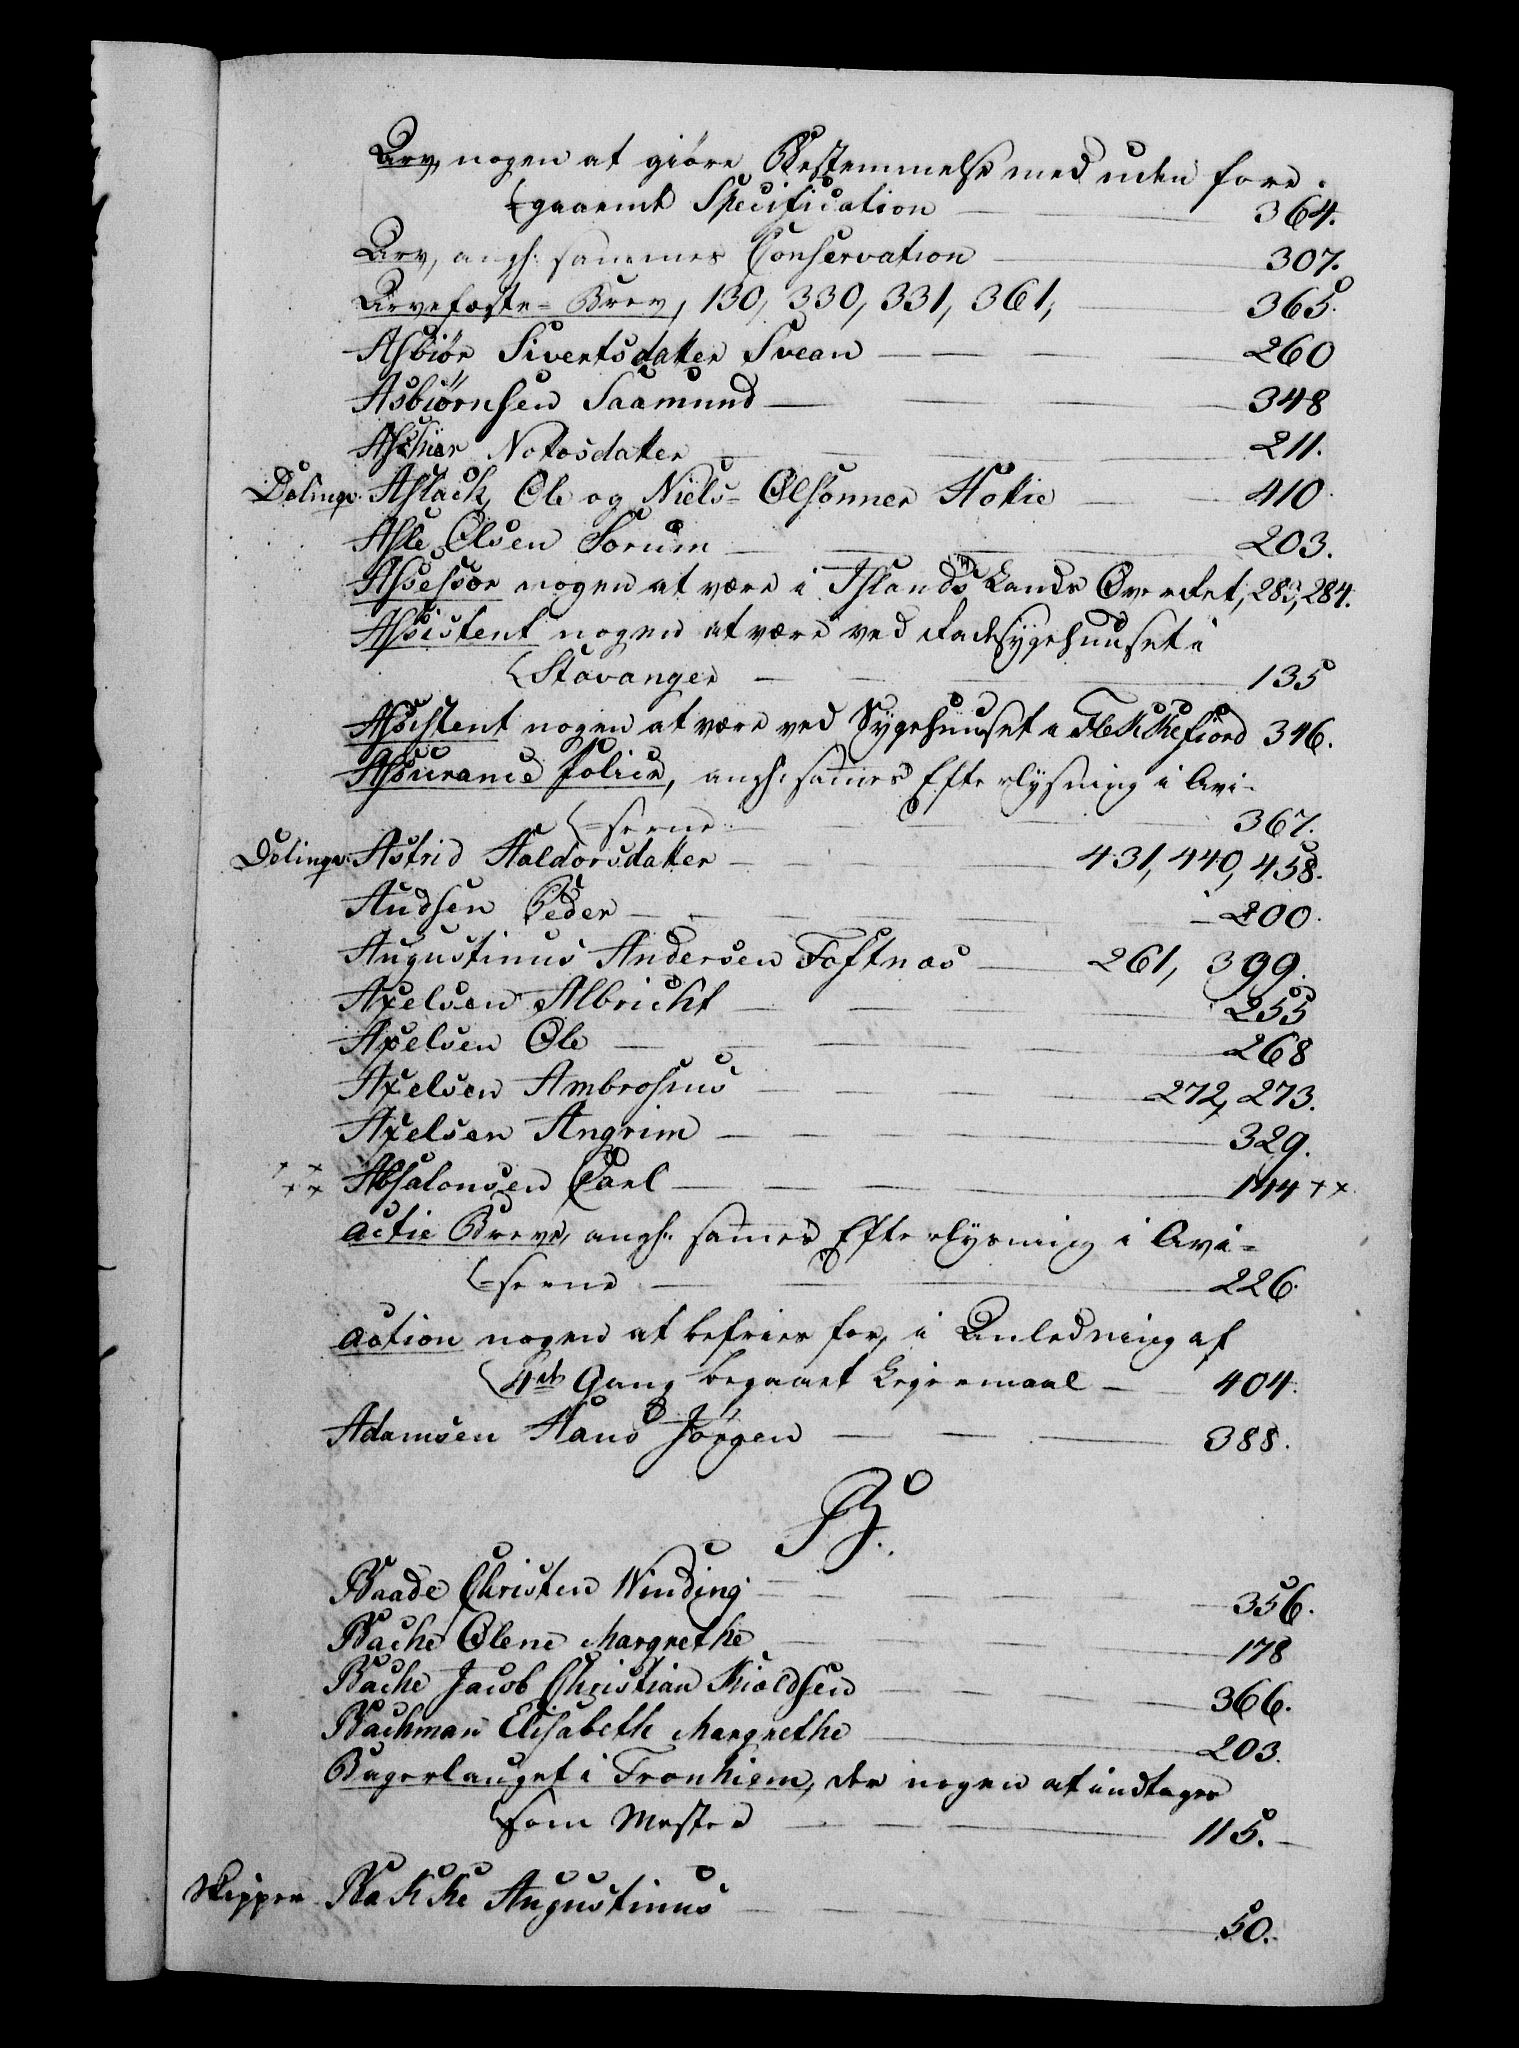 Arv, nogen at giöre Bestemmelse med uden fore-
=gaaende Specification — 364.
Arv, angl: sammes Conservation — 307.
Arvefæste-Brev, 130, 330, 331, 361, — 365.
Asbiör Sivertsdatter Svean — 260
Asbiörnsen Saamund — 348
Notosdatter — 211.
Dölinge. Aslack, Ole og Niels-Olsönner Hokie — 410.
Asle Olsen Sorum — 203.
Assessor nogen at være i Islands Lands Overret, 283, 284.
Assistent nogen at være ved Radesygehuuset i
Stavanger — 135
Assistent nogen at være ved Sygehuuset i Flekkefiord 346.
Assurance Police, angl: sammes Efterlysning i Avi-
=serne — 367.
Dölinge. Astrid Haldorsdatter — 431, 440, 458.
Audsen Peder — 200.
Augustinus Andersen Toftnæs — 261, 399.
Axelsen Albricht — 255
Axelsen Ole — 268
Axelsen Ambrosius — 272, 273.
Axelsen Angrim — 329.
×× ×× Absalonsen Carl — 144 ××
Actie Breve, angl: sammes Efterlysning i Avi=
=serne — 226.
Action nogen at befries for, i Anledning af
4de Gang begaaet Leiermaal — 404.
Adamsen Hans Jörgen — 388.
B.
Baade Christen Winding — 356.
Bache Olene Margrethe — 178
Bache Jacob Christian Kioldsen — 366.
Bachman Elisabeth Margrethe — 203.
Bagerlauget i Tronhiem, der nogen at indtages
som Mester — 115.
Skipper Bakke Augustinus — 50.